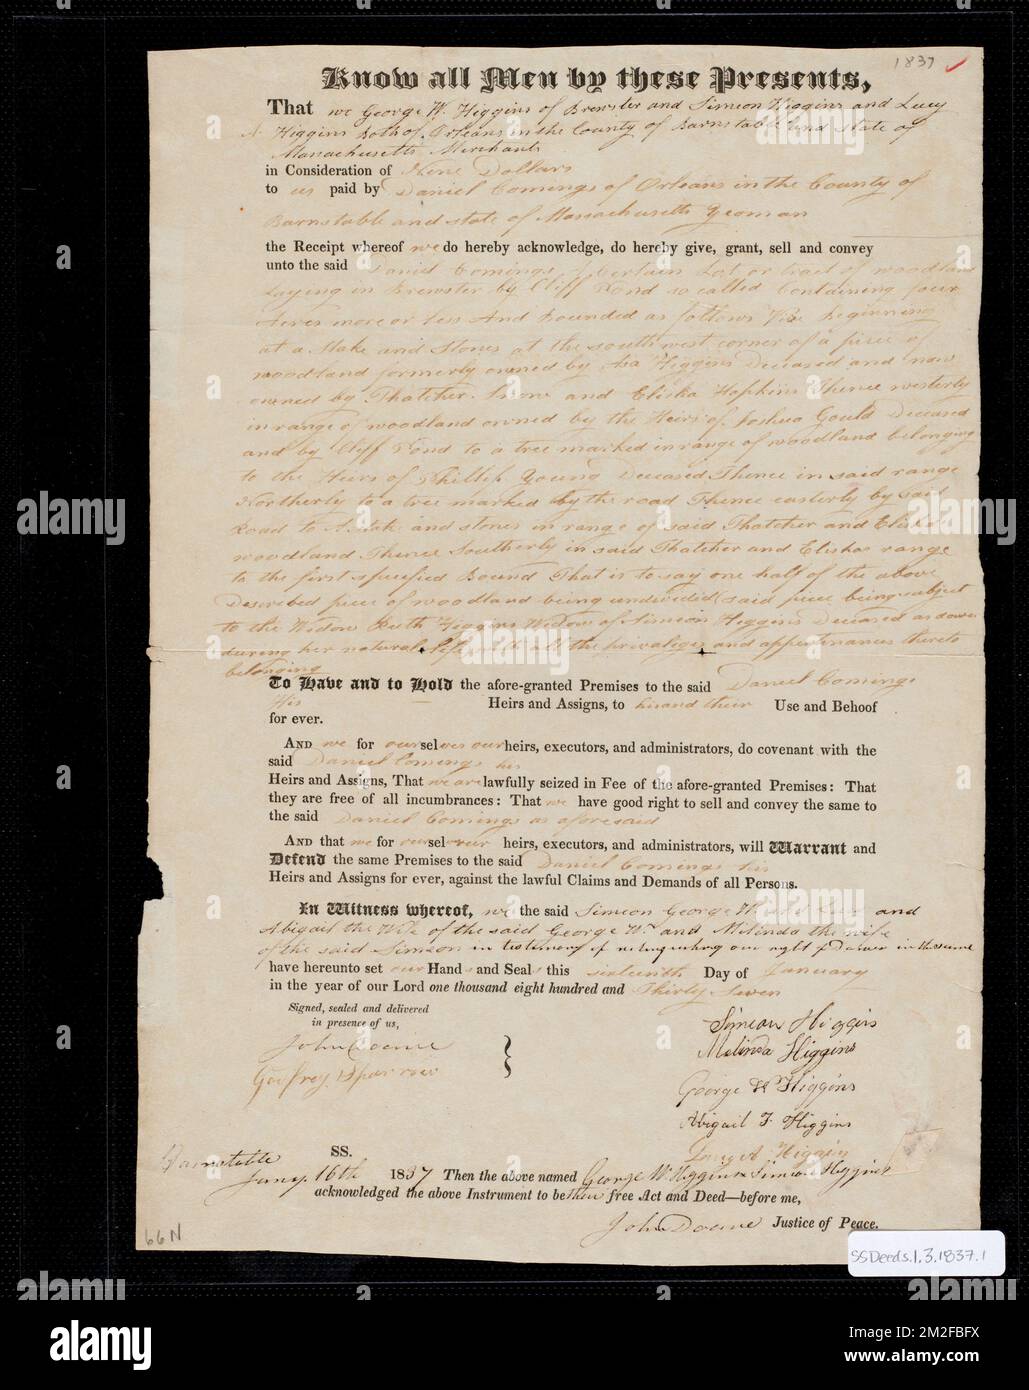 1837
Know all Men by these Presents,
That we George W. Higgins of Brewster and Simeon Higgins and Lucy
A. Higgins Both of Orleans in the County of Barnstable and State of
Massachusetts Merchants
in Consideration of Nine Dollars
to us paid by Daniel Comings of Orleans in the County of
Barnstable and state of Massachusetts Yeoman
the Receipt whereof we do hereby acknowledge, do hereby give, grant, sell and convey
unto the said Daniel Comings A Certain Lot or tract of woodland
Laying in Brewster by Cliff Pond so called Containing four
Acres more or less And Bounded as follows Viz Beginning
at a Stake and Stones at the southwest corner of a piece of
woodland formerly owned by Asa Higgins Deceased and now
owned by Thatcher Snow and Elisha Hopkins Thence westerly
in range of woodland owned by the Heirs of Joshua Gould Deceased
and by Cliff Pond to a tree marked in range of woodland belonging
to the Heirs of Phillip Young Deceased Thence in said range
Northerly to a tree marked by the road Thence easterly by said
Road to A Stake and stones in range of said Thatcher and Elisha
woodland Thence Southerly in said Thatcher and Elishas range
to the first specified Bound That is to say one half of the above
Described piece of woodland being undivided (said piece being subject
to the Widow Ruth Higgins Widow of Simeon Higgins Deceased as dower
during her natural life with all the privaleges and appertinances thereto
belonging
To Have and to Hold the afore-granted Premises to the said Daniel Comings
His Heirs and Assigns, to his and their Use and Behoof
for ever.
And we for ourselves our heirs, executors, and administrators, do covenant with the
said Daniel Comings his
Heirs and Assigns, That we are lawfully seized in Fee of the afore-granted Premises: That
they are free of all incumbrances: That we have good right to sell and convey the same to
the said Daniel Comings as aforesaid
And that we for our sel our heirs, executors, and administrators, will Warrant and
Defend the same Premises to the said Daniel Comings his
Heirs and Assigns for ever, against the lawful Claims and Demands of all Persons.
In Witness whereof, we the said Simeon George W. and Lucy and
Abigail the Wife of the said George W. and Milinda the wife
of the said Simeon in testimony of relinquishing our right of Dower in the same
have hereunto set our Hands and Seals this sixteenth Day of January
in the year of our Lord one thousand eight hundred and Thirty Seven
Signed, sealed and delivered
in presence of us,
John Doane
Godfrey Sparrow
}
Simeon Higgins
Melinda Higgins
George W Higgins
Abigail T. Higgins
Lucy A Higgins
Barnstable SS.
Jany. 16th 1837 Then the above named George W. Higgins & Simeon Higgins
acknowledged the above Instrument to be their free Act and Deed—before me,
John Doane Justice of Peace.
66N
SSDeeds.1.3.1837.1
alamy
Image ID: 2M2FBFX
www.alamy.com